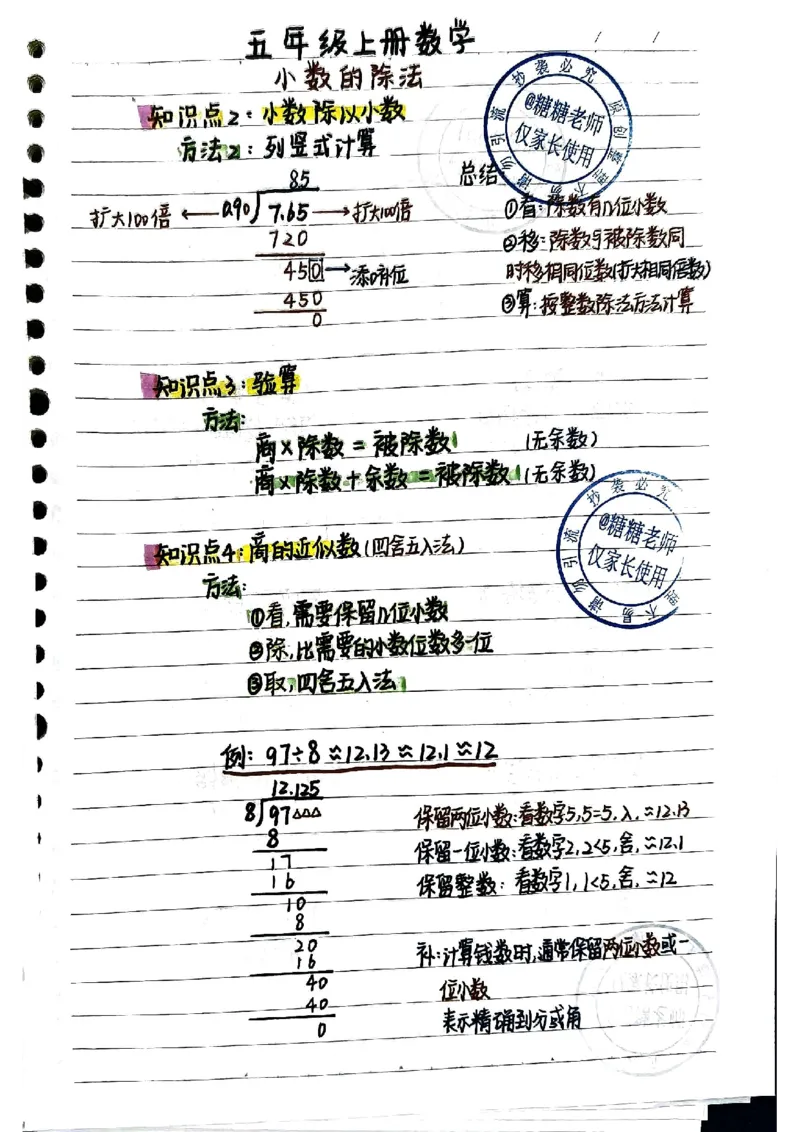 五年级上册数学
小数的除法
知识点2：小数除以小数
方法2：列竖式计算
85
扩大100倍 ← 0.90 7.65 → 扩大100倍
720
450 → 添0占位
450
0
总结
①看：除数有几位小数
②移：除数与被除数同
时移相同位数(扩大相同倍数)
③算：按整数除法方法计算
知识点3：验算
方法：
商×除数＝被除数 (无余数)
商×除数＋余数＝被除数 (无余数)
知识点4：商的近似数(四舍五入法)
方法：
①看，需要保留几位小数
②除，比需要的小数位数多一位
③取，四舍五入法
例：97÷8≈12.13≈12.1≈12
12.125
8 97△△△
8
17
16
10
8
20
16
40
40
0
保留两位小数：看数字5,5=5,入,≈12.13
保留一位小数：看数字2,2<5,舍,≈12.1
保留整数：看数字1,1<5,舍,≈12
补：计算钱数时,通常保留两位小数或一
位小数
表示精确到分或角
抄袭必究 原创
@糖糖老师
仅家长使用
请勿引流
不易
抄袭必究
@糖糖老师
仅家长使用
请勿引流
不易